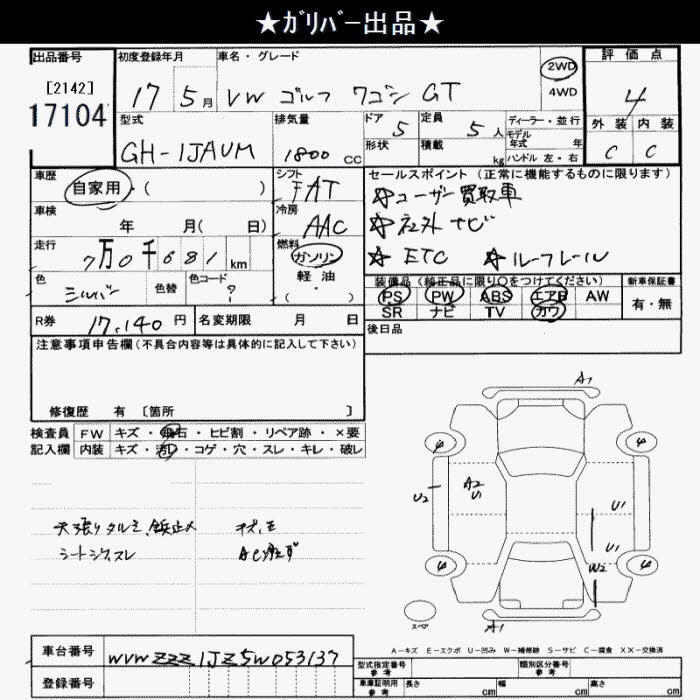 ★ｶﾞﾘﾊﾞｰ出品★
出品番号 初度登録年月 車名・グレード 評価点
[2142] 17104
17年 5月 VW ゴルフ ワゴン GT 2WD 4WD 4
型式 排気量 ドア 定員 ディーラー・並行 外装 内装
GH-1JAUM 1800 CC 5 5人 モデル年式 年 C C
形状 積載 kg ハンドル 左・右
車歴 シフト セールスポイント (正常に機能するものに限ります)
自家用・( ) FAT ☆ユーザー買取車
車検 年 月( 日) 冷房 AAC ☆社外ナビ
走行 7万0千681km 燃料 ガソリン ☆ETC ☆ルーフレール
色 シルバー 色替 色コード ? 軽・油 ・( )
装備品 (純正品に限り○をつけてください) 新車保証書
PS PW ABS エアB AW 有・無
SR ナビ TV カワ
R券 17,140円 名変期限 月 日 後日品
注意事項申告欄(不具合内容等は具体的に記入して下さい)
修復歴 有 [箇所 ]
検査員 FW キズ・飛石・ヒビ割・リペア跡・×要
記入欄 内装 キズ・汚レ・コゲ・穴・スレ・キレ・破レ
天張りタルミ、
シートシワスレ
A1
U2
A2
U1
U1
U1
W2
A1
スペア
A-キズ E-エクボ U-凹み W-補修跡 S-サビ C-腐食 XX-交換済
車台番号 WVWZZZ1JZ5W053137
登録番号
型式指定番号 参考 類別区分番号 参考
車庫証明用 参考 長さ cm 幅 cm 高さ cm